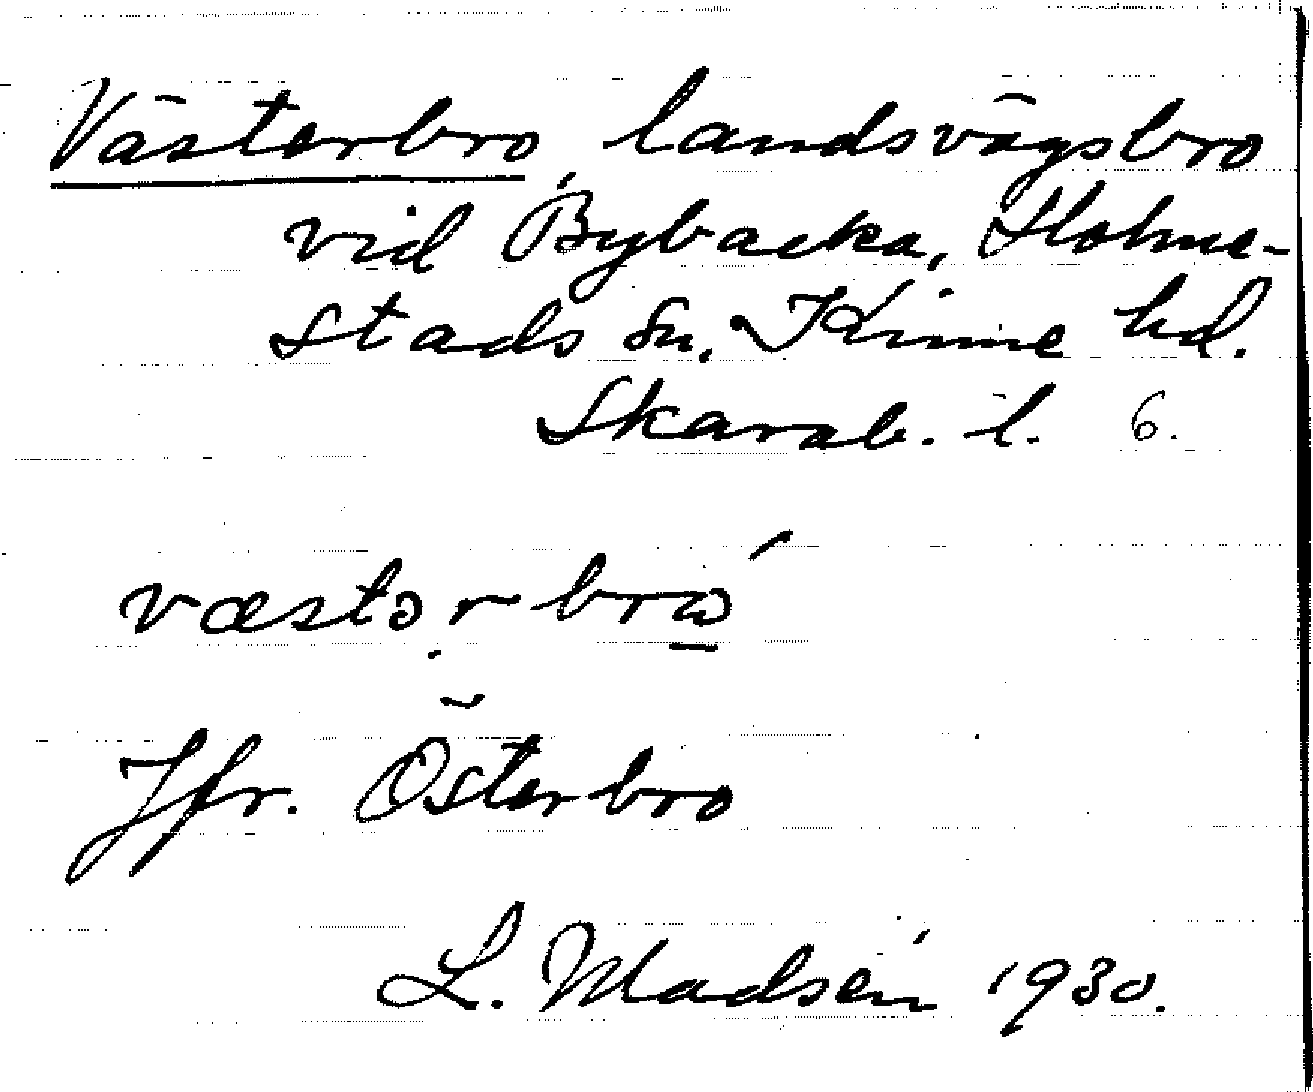 Västerbro, landsvägsbro
vid Bybacka, Holme-
stads sn. Kinne hd.
Skarab. l. 6.
væstər brώ̲
Jfr. Österbro
L. Madsén 1930.